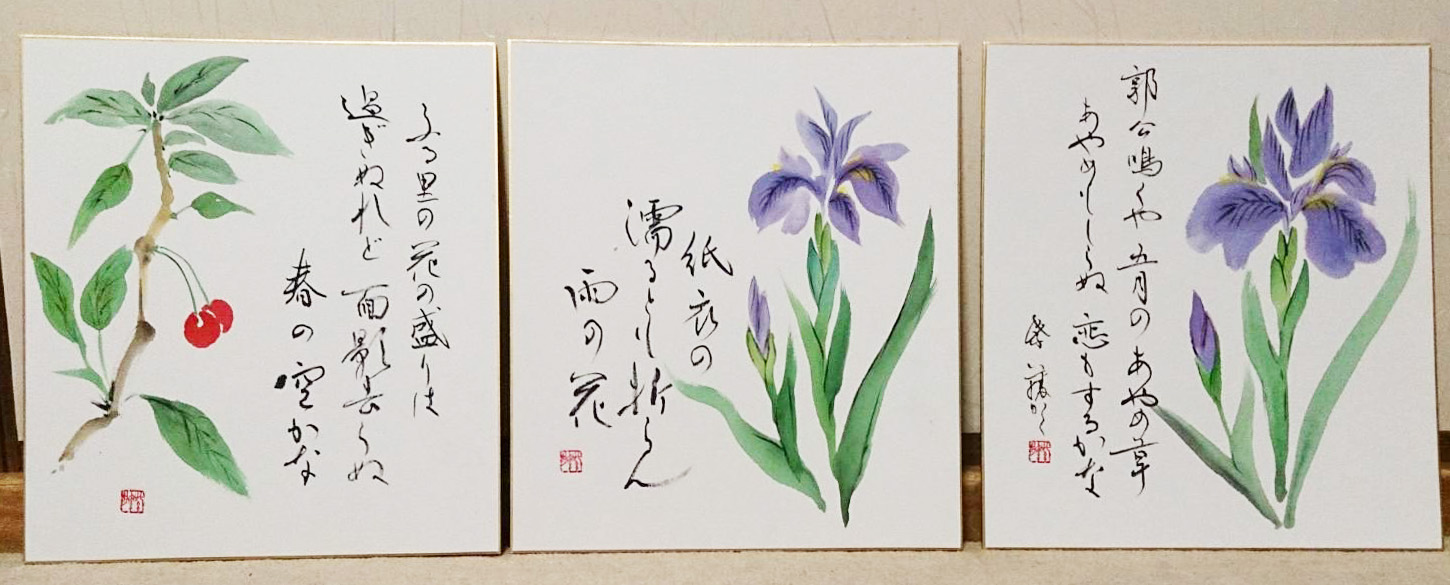 ふる里の花の盛りは
過ぎぬれど面影去らぬ
春の空かな
紙衣の
濡るとも折らん
雨の花
郭公鳴くや五月のあやめ草
あやめもしらぬ恋もするかな